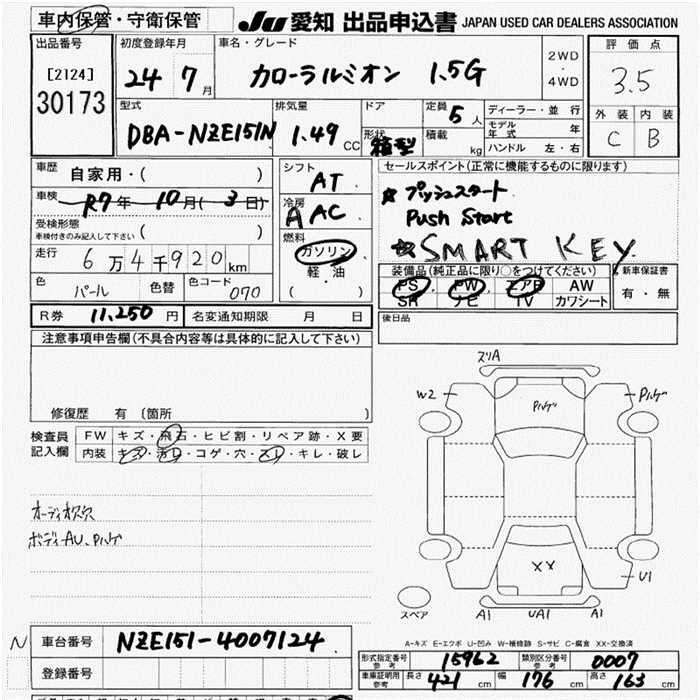 車内保管・守衛保管
JU 愛知 出品申込書 JAPAN USED CAR DEALERS ASSOCIATION
出品番号
[2124]
30173
初度登録年月
24 7月
車名・グレード
カローラルミオン 1.5G
2WD
・
4WD
評価点
3.5
外装 内装
C B
型式
DBA-NZE151N
排気量
1.49 CC
ドア
形状
箱型
定員 5人
積載 kg
ディーラー・並行
モデル年式 年
ハンドル 左・右
車歴 自家用・( )
車検 R7年 10月(3日)
受検形態
車検付きのみ記入して下さい ( )
走行 6万4千920km
色 パール 色替 色コード 070
シフト AT
冷房 AAC
燃料
ガソリン
軽・油
( )
セールスポイント(正常に機能するものに限ります)
☆プッシュスタート
Push Start
☆SMART KEY.
装備品(純正品に限り○をつけてください)
PS PW エアB AW
SR ナビ TV カワシート
新車保証書
有・無
R券 11,250円 名変通知期限 月 日
後日品
注意事項申告欄(不具合内容等は具体的に記入して下さい)
修復歴 有 〔箇所 〕
検査員記入欄
FW キズ・飛石・ヒビ割・リペア跡・X要
内装 キズ・汚レ・コゲ・穴・スレ・キレ・破レ
オーディオ欠穴
ボディーAU、Pハゲ
スリA
W2
Pハゲ
Pハゲ
XX
U1
スペア
A1 UA1 A1
A-キズ E-エクボ U-凹み W-補修跡 S-サビ C-腐食 XX-交換済
N 車台番号 NZE151-4007124
登録番号
形式指定番号参考 15962 類別区分番号参考 0007
車庫証明用参考 長さ 421 cm 幅 176 cm 高さ 163 cm